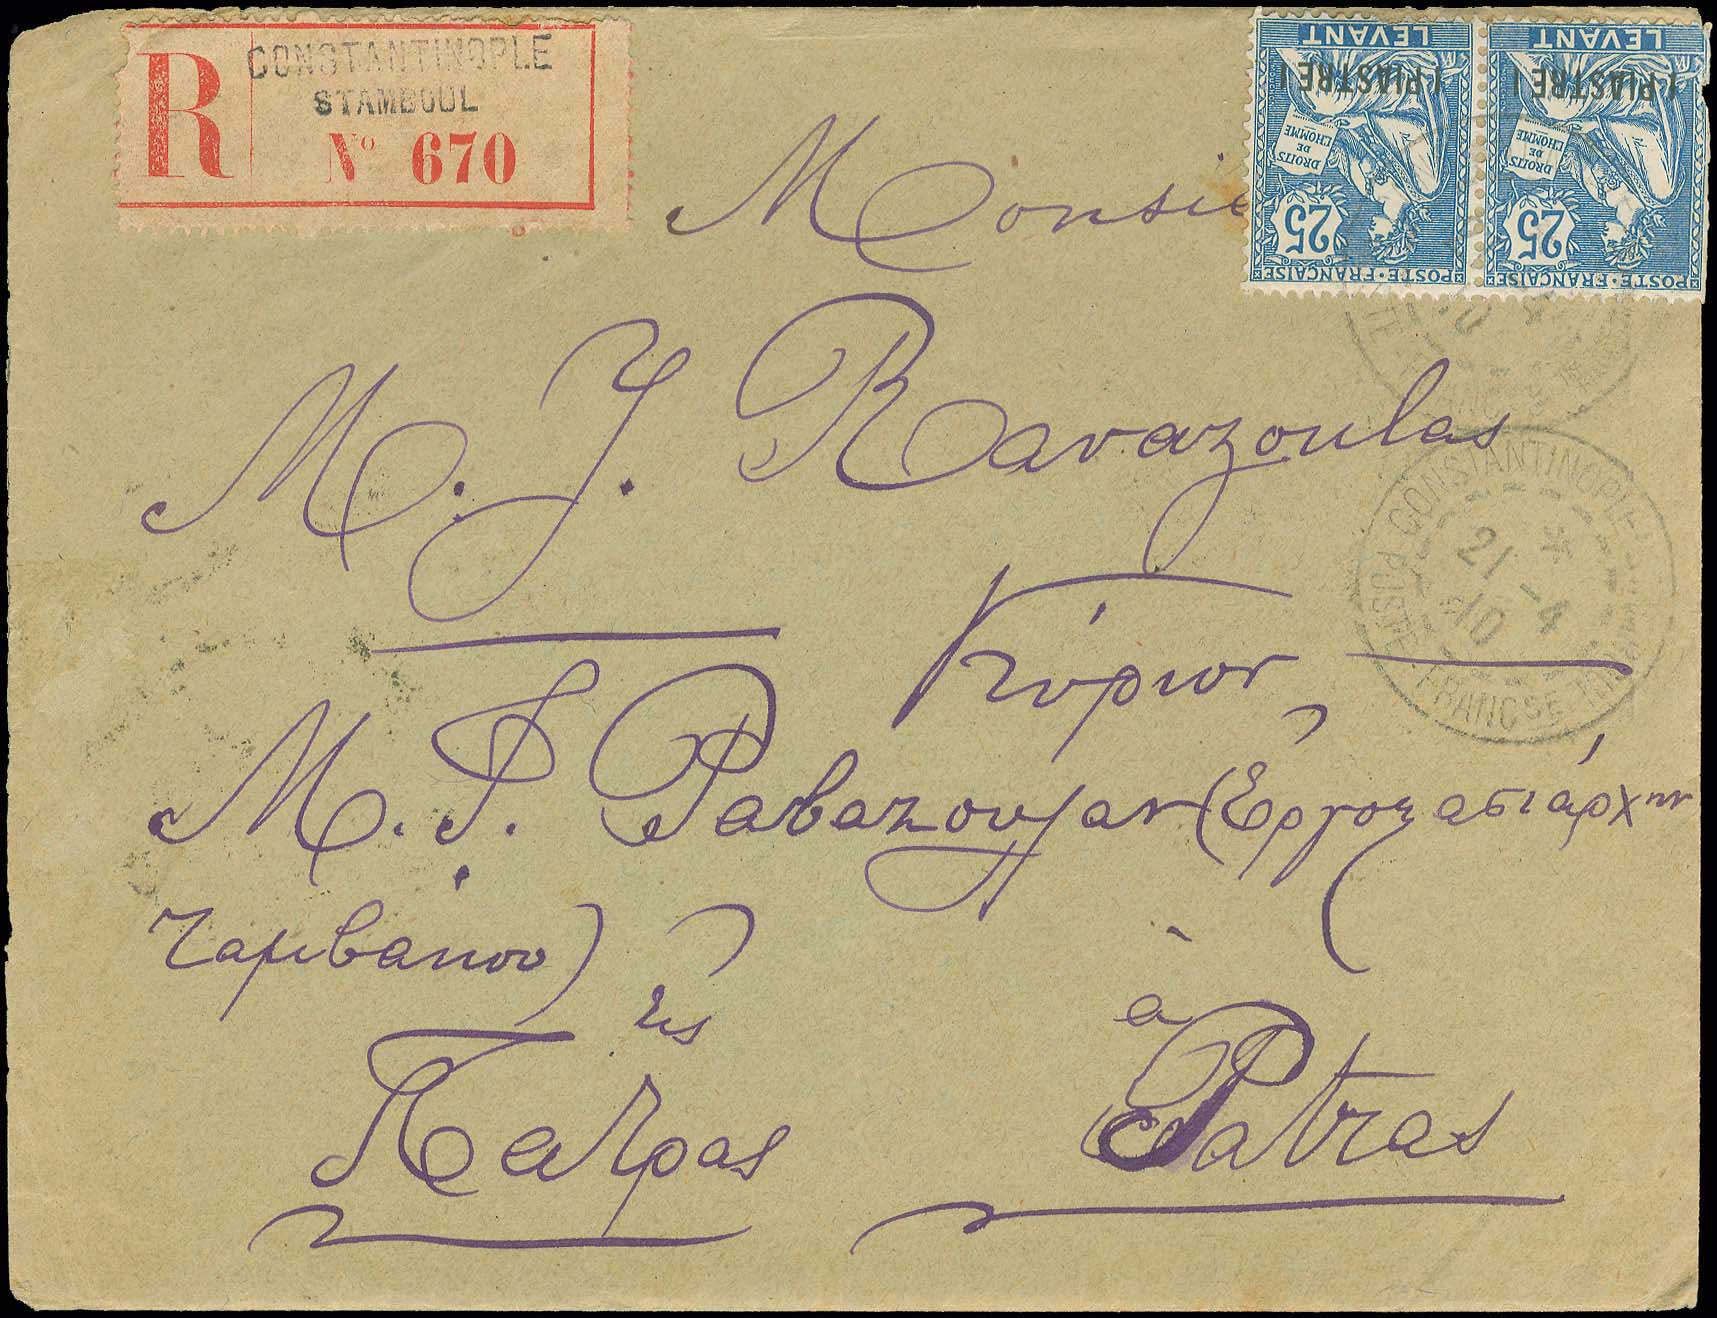 R
CONSTANTINOPLE
STAMBOUL
Nº 670
LEVANT
1 PIASTRE 1
DROITS DE L'HOMME
25
POSTE·FRANÇAISE
LEVANT
1 PIASTRE 1
DROITS DE L'HOMME
25
POSTE·FRANÇAISE
Monsie
M. J. Ravazoulas
CONSTANTINOPLE
21 - 4
10
POSTE FRANCSE
Κύριον
Μ. Ι. Ραβαζουλαν (Ἐργοστασιάρχην
ταμβακου)
εις
Πατρας
à
Patras